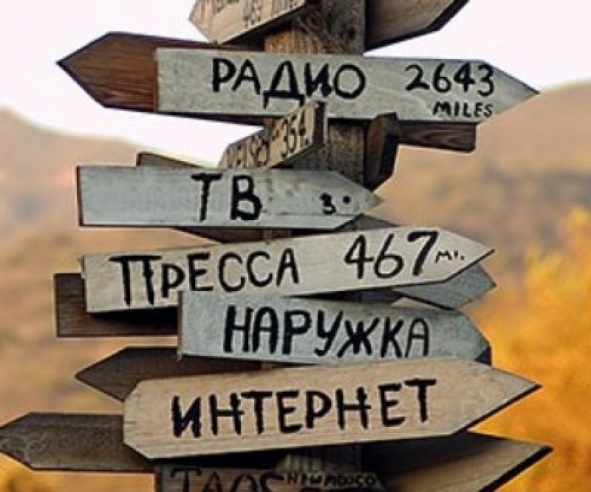 РАДИО 2643
MILES
354
ТВ 3.
ПРЕССА 467 MI.
НАРУЖКА
ИНТЕРНЕТ
TAOS NEW MEXICO